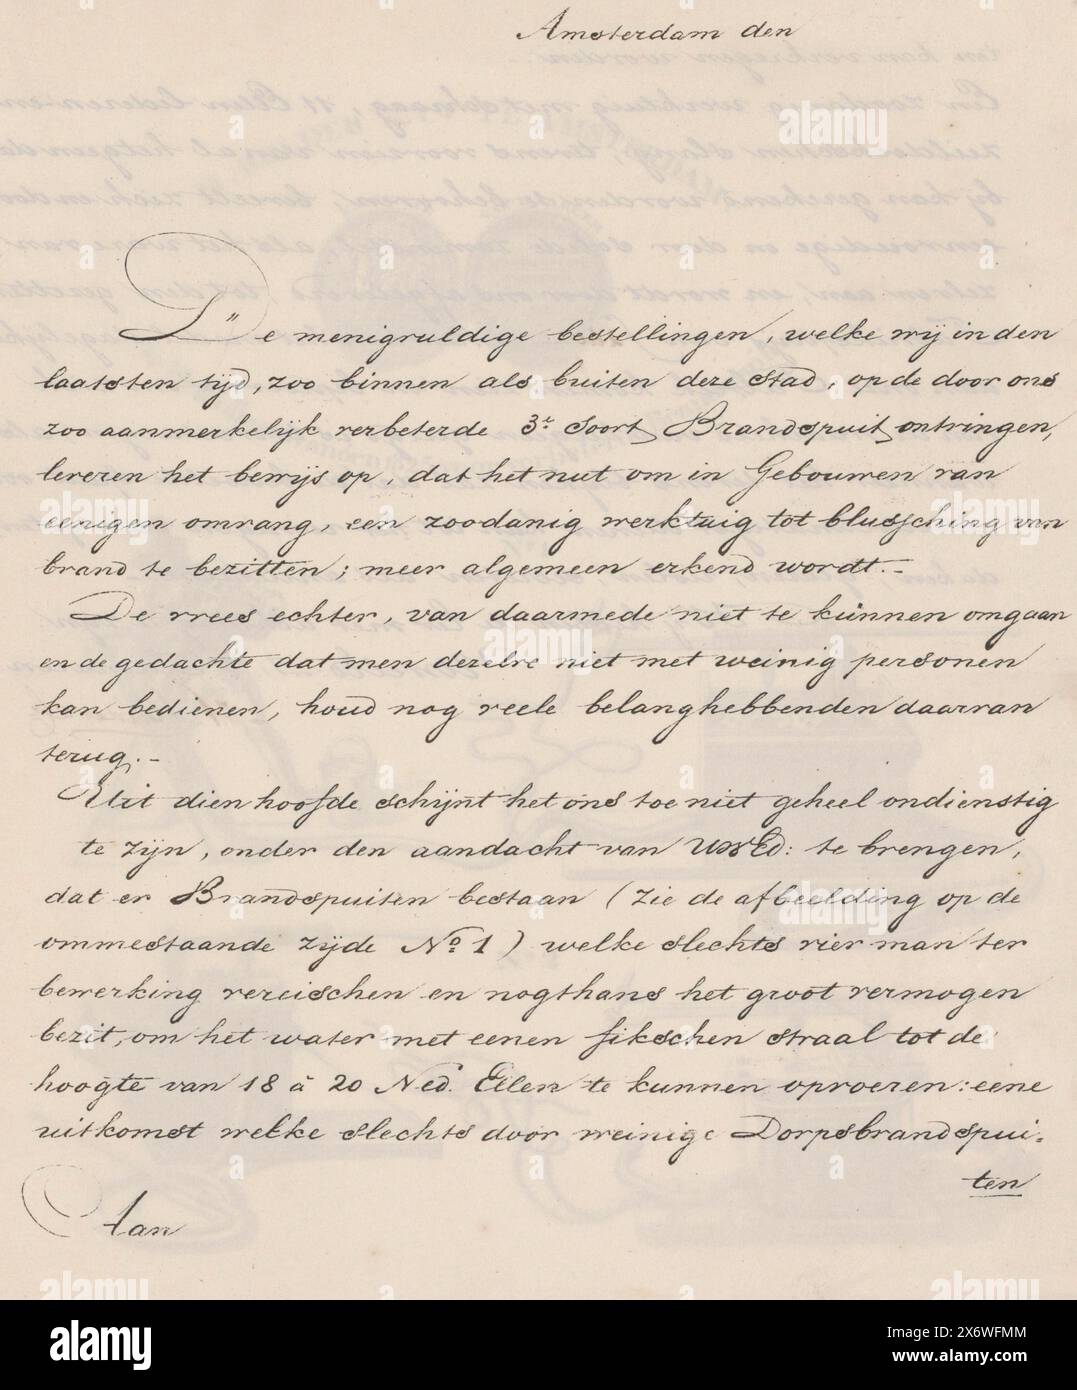 Amsterdam den
De menigvuldige bestellingen, welke wij in den
laatsten tijd, zoo binnen als buiten deze stad, op de door ons
zoo aanmerkelijk verbeterde 3e. Soort Brandspuit, ontvingen,
leveren het bewijs op, dat het nut om in Gebouwen van
eenigen omvang, een zoodanig werktuig tot blussching van
brand te bezitten; meer algemeen erkend wordt.-
De vrees echter, van daarmede niet te kunnen omgaan
en de gedachte dat men dezelve niet met weinig personen
kan bedienen, houd nog veele belanghebbenden daarvan
terug.-
Uit dien hoofde schijnt het ons toe niet geheel ondienstig
te zijn, onder den aandacht van UWEd: te brengen,
dat er Brandspuiten bestaan (zie de afbeelding op de
ommestaande zijde No. 1) welke slechts vier man ter
bewerking vereischen en nogthans het groot vermogen
bezit, om het water met eenen fikschen straal tot de
hoogte van 18 à 20 Ned. Ellen te kunnen opvoeren: eene
uitkomst welke slechts door weinige Dorpsbrandspui-
ten
Aan
alamy
Image ID: 2X6WFMM
www.alamy.com